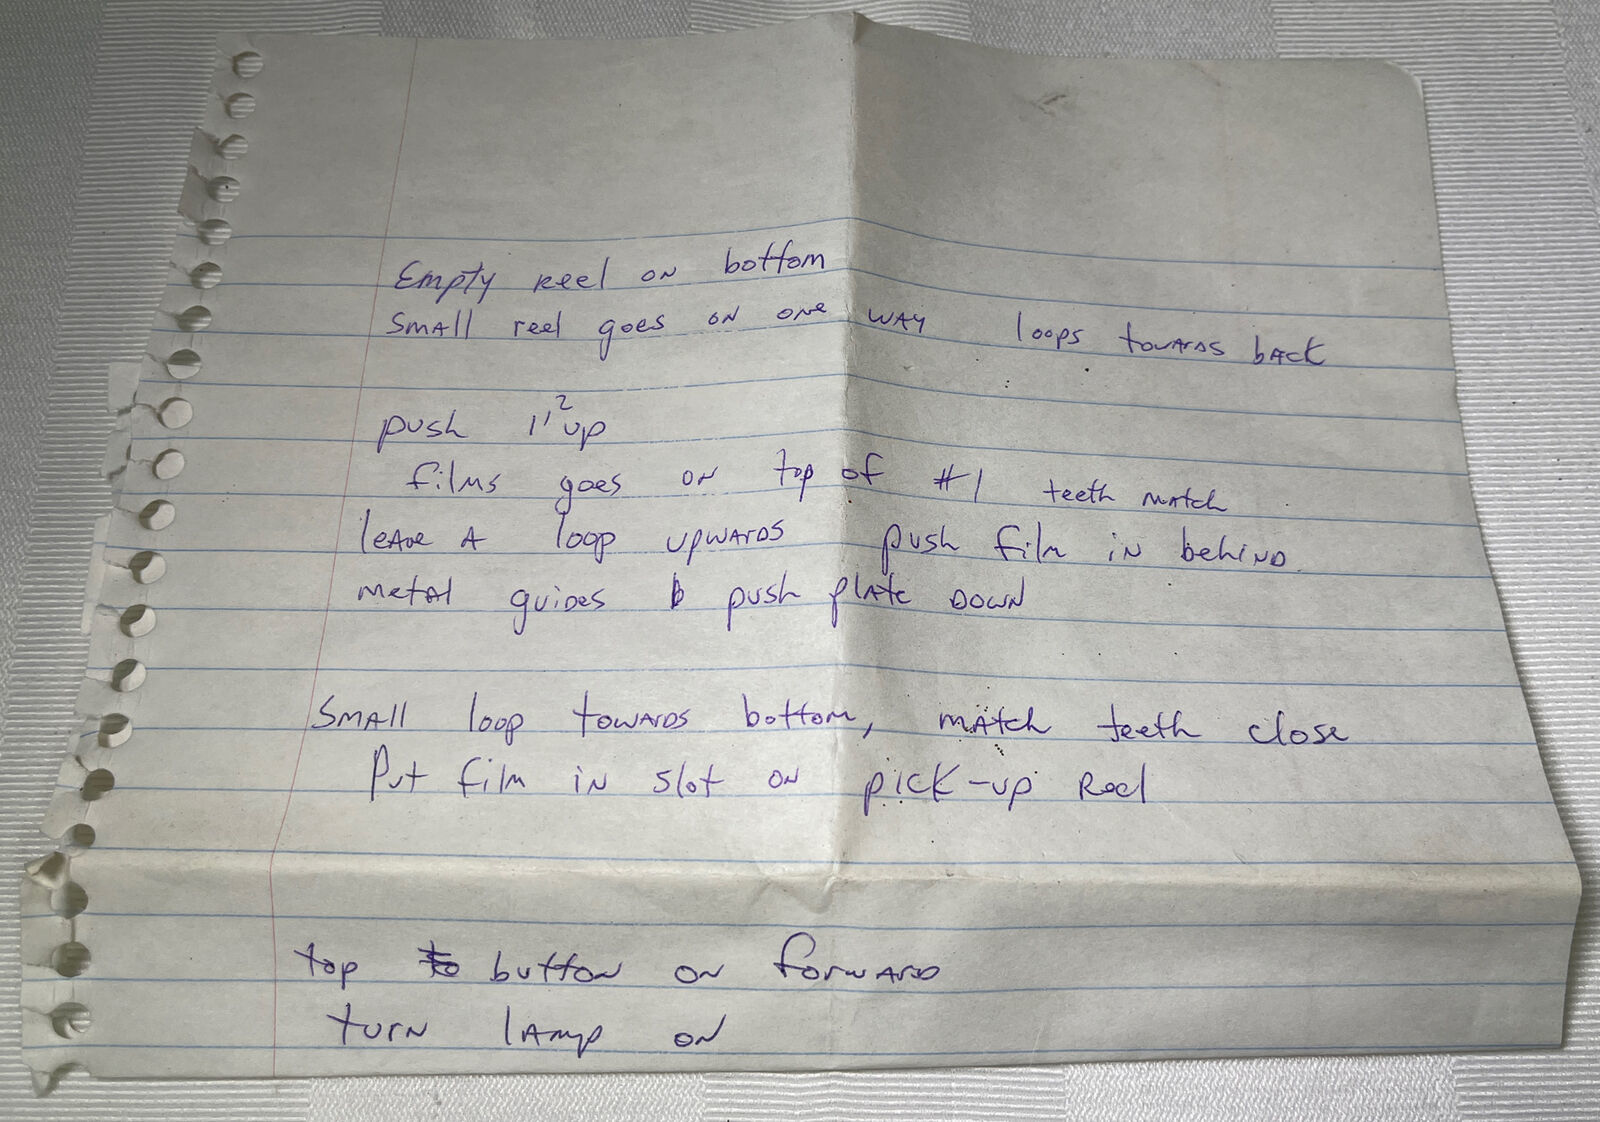 Empty reel on bottom
small reel goes on one way loops towards back
push 1,2 up
films goes on top of #1 teeth match
leave a loop upwards push film in behind
metal guides push plate down
small loop towards bottom, match teeth close
Put film in slot on pick-up Reel
top button on forward
turn lamp on